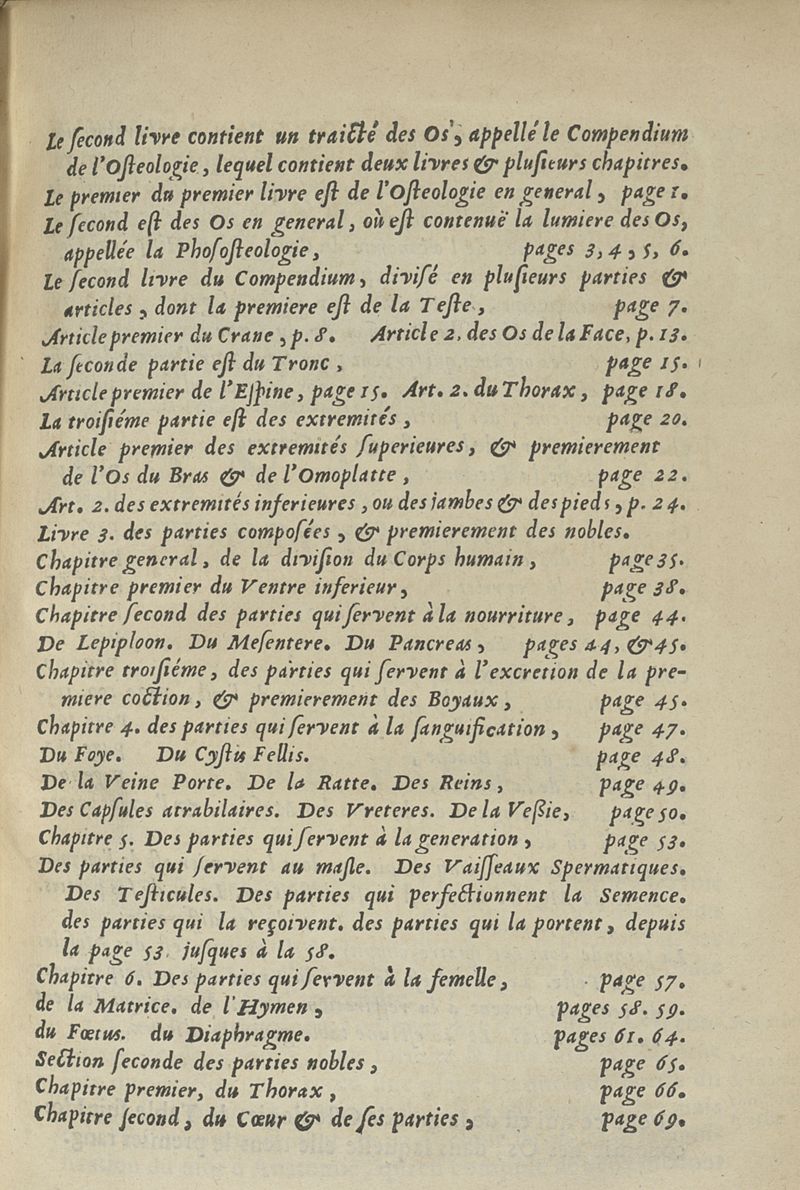 Le ſecond livre contient un traicté des Os, appellé le Compendium
de l'Oſteologie, lequel contient deux livres & pluſieurs chapitres.
Le premier du premier livre eſt de l'Oſteologie en general, page 1.
Le ſecond eſt des Os en general, où eſt contenuë la lumiere des Os,
appellée la Phoſoſteologie, pages 3, 4, 5, 6.
Le ſecond livre du Compendium, diviſé en pluſieurs parties &
articles, dont la premiere eſt de la Teſte, page 7.
Article premier du Crane, p. 8. Article 2. des Os de la Face, p. 13.
La ſeconde partie eſt du Tronc, page 15.
Article premier de l'Eſpine, page 15. Art. 2. du Thorax, page 18.
La troiſiéme partie eſt des extremités, page 20.
Article premier des extremités ſuperieures, & premierement
de l'Os du Bras & de l'Omoplatte, page 22.
Art. 2. des extremités inferieures, ou des jambes & des pieds, p. 24.
Livre 3. des parties compoſées, & premierement des nobles.
Chapitre general, de la diviſion du Corps humain, page 35.
Chapitre premier du Ventre inferieur, page 38.
Chapitre ſecond des parties qui ſervent à la nourriture, page 44.
De Lepiploon. Du Meſentere. Du Pancreas, pages 44, & 45.
Chapitre troiſiéme, des parties qui ſervent à l'excretion de la pre-
miere coction, & premierement des Boyaux, page 45.
Chapitre 4. des parties qui ſervent à la ſanguification, page 47.
Du Foye. Du Cyſtis Fellis. page 48.
De la Veine Porte. De la Ratte. Des Reins, page 49.
Des Capſules atrabilaires. Des Vreteres. De la Veſſie, page 50.
Chapitre 5. Des parties qui ſervent à la generation, page 53.
Des parties qui ſervent au maſle. Des Vaiſſeaux Spermatiques.
Des Teſticules. Des parties qui perfectionnent la Semence.
des parties qui la reçoivent. des parties qui la portent, depuis
la page 53. juſques à la 58.
Chapitre 6. Des parties qui ſervent à la femelle, page 57.
de la Matrice. de l'Hymen, pages 58. 59.
du Fœtus. du Diaphragme. pages 61. 64.
Section ſeconde des parties nobles, page 65.
Chapitre premier, du Thorax, page 66.
Chapitre ſecond, du Cœur & de ſes parties, page 69.